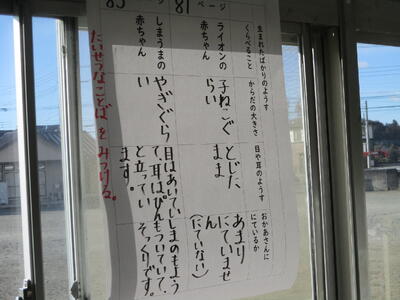 生まれたばかりのようす
くらべること
からだの大きさ
目や耳のようす
おかあさんに
にているか
81ページ
ライオンの
赤ちゃん
子ねこぐ
らい
とじた
まま
あまり
にていませ
ん
(にていない)
85ページ
しまうまの
赤ちゃん
やぎぐら
い
目はあいてい
て、耳はぴん
と立ってい
ます。
しまのもよう
もついていて、
そっくりです。
たいせつなことばをみつける。